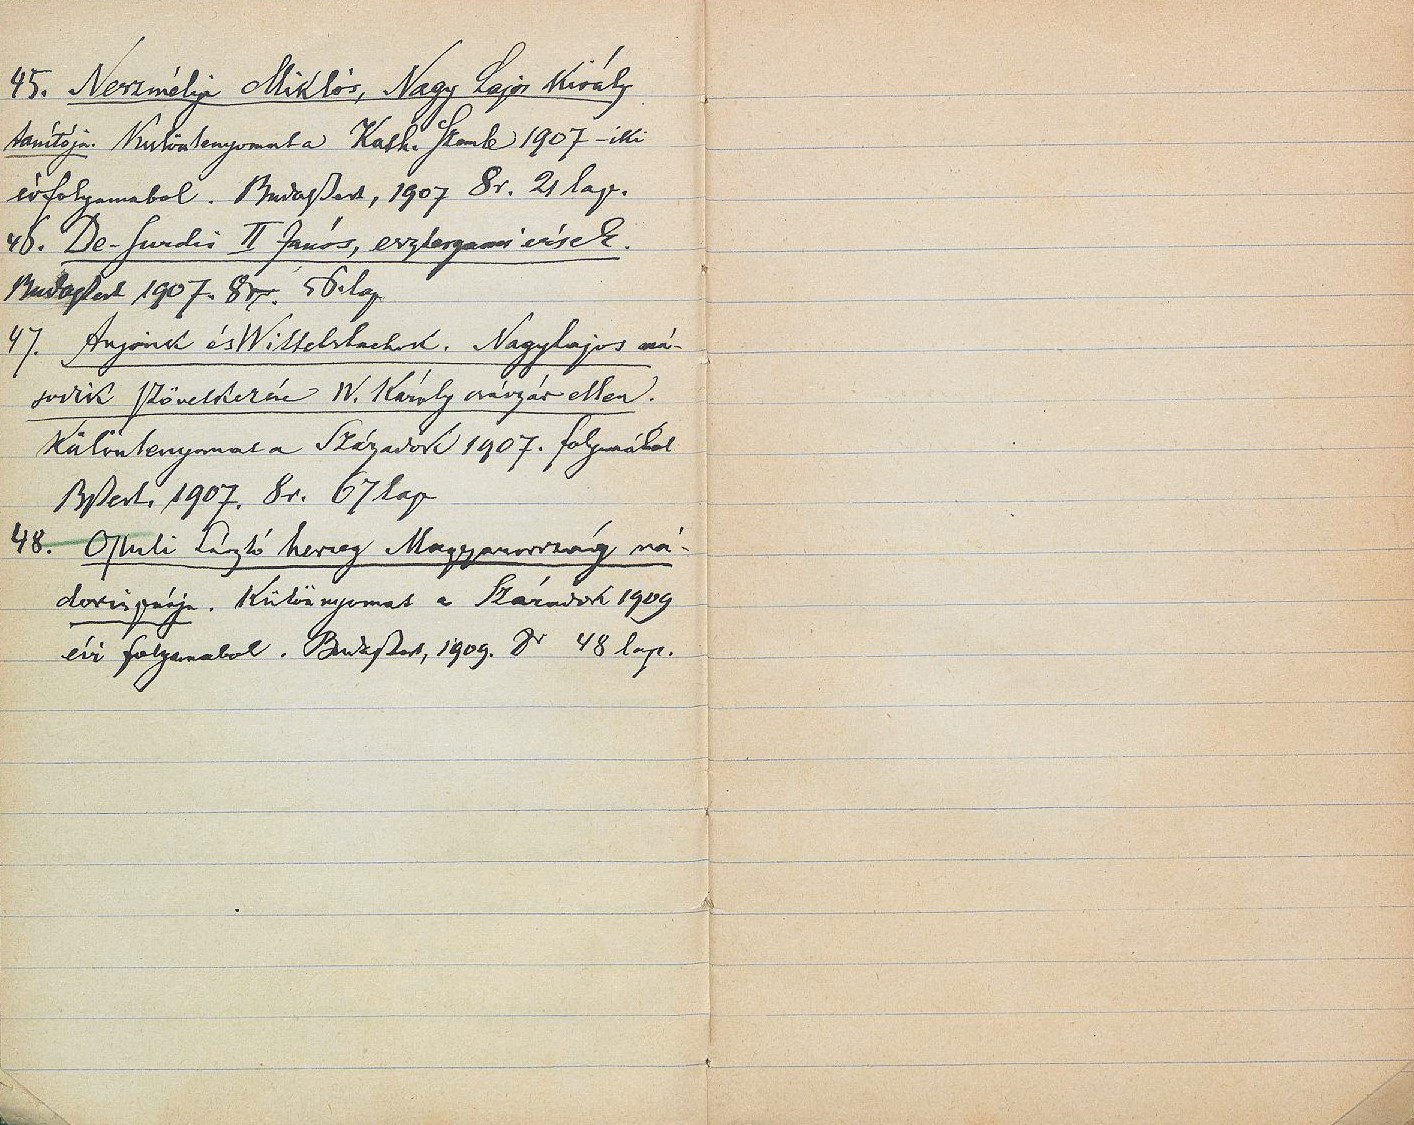 45. Neszmélyi Miklós, Nagy Lajos Király
tanítója. Különlenyomat a Kath. Szemle 1907-iki
évfolyamabol. Budapest, 1907 8r. 21 lap.
46. De-Surdis II János, esztergomi érsek.
Budapest 1907. 8r. 56. lap
47. Anjouk és Wittelsbachok. Nagy Lajos má-
sodik szövetkezése IV. Károly császár ellen.
Különlenyomat a Századok 1907. folyamából
Bpest. 1907. 8r. 67 lap
48. Opuli László herceg Magyarország ná-
dorispánja. Különnyomat a Századok 1909
évi folyamabol. Budapest, 1909. 8r 48 lap.